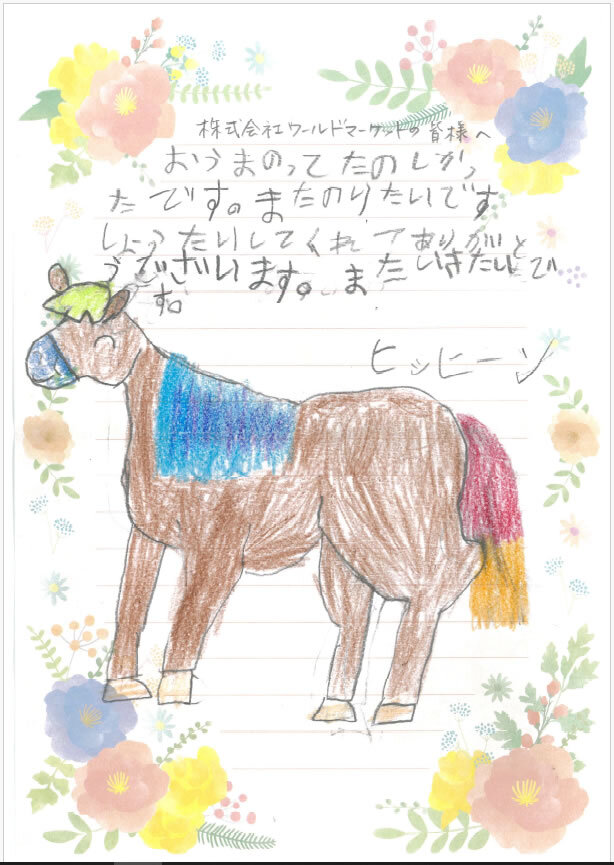 株式会社ワールドマーケットの皆様へ
おうまのってたのしかっ
たです。またのりたいです
しょうたいしてくれてありがと
うございます。またいきたいで
す。
ヒッヒーン